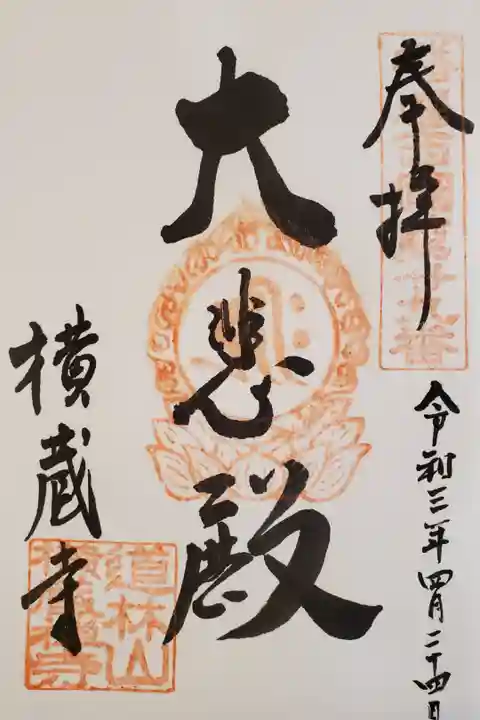 奉拝
令和三年四月二十四日
大悲殿
横蔵寺
道林山
横蔵寺